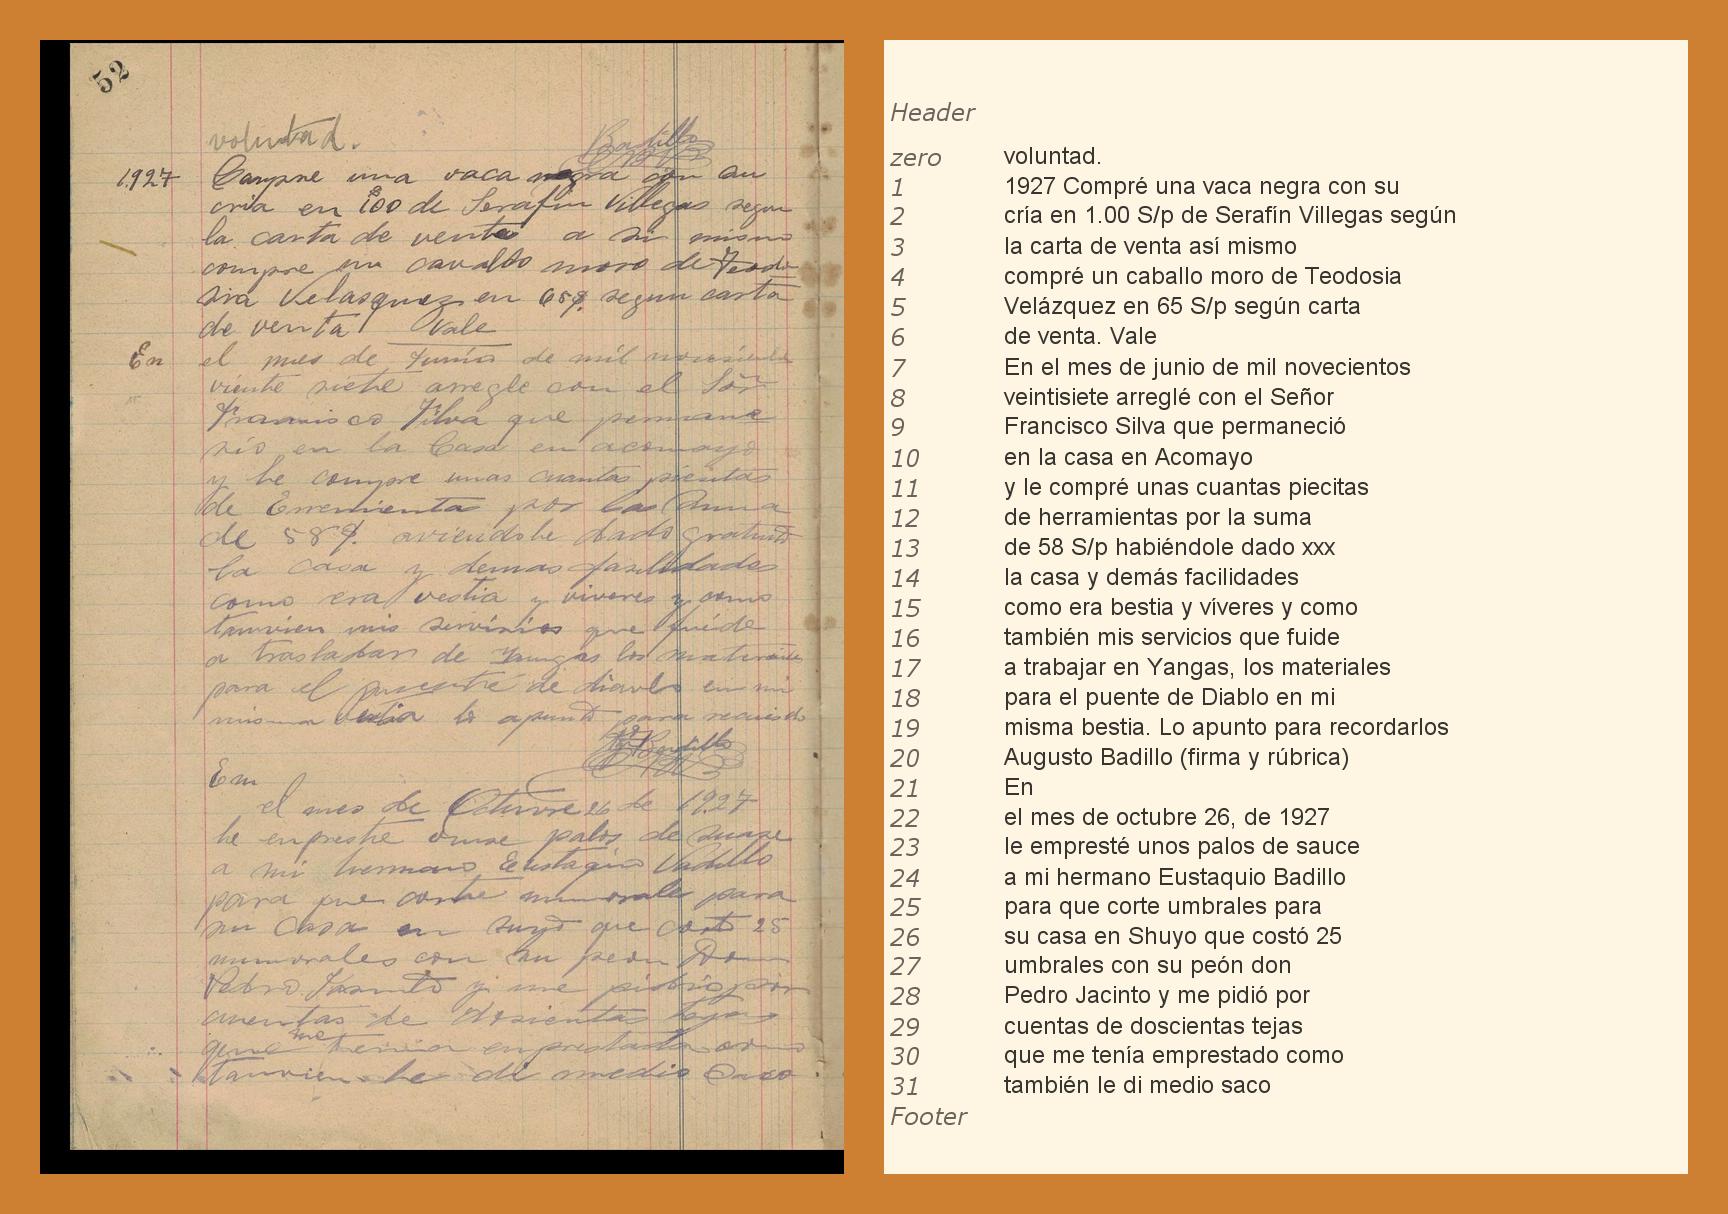 52
voluntad.
Badillo
1927 Compre una vaca negra con su
cria en 100 de Serafin Villegas segun
la carta de venta a si mismo
compre un cavallo moro de Teodo
sia Velasquez en 65 segun carta
de venta Vale
En el mes de Junio de mil
viente siete arregle con el Sor
Francisco Silva que permane
sio en la Casa en acomayo
y le compre unas cuantas piesitas
de Erremienta por la Suma
de 58 aviendole dado
la casa y demas fasilidades
como era vestia y viveres y como
tamvien mis servisios que fuide
a trasladar de Yangas los materiales
para el puente de diavlo en mi
misma vestia lo apunto para
Badillo
En
el mes de Octuvre 26 de 1927
le enpreste palos de sause
a mi hermano Eustaquio Vadillo
para que corte para
su Casa en que corto 25
con su peon Don
Pedro Jasinto y me pidio por
cuentas de dosientas tejas
que me tenia enprestado como
tamvien le di medio Saco
Header
zero voluntad.
1 1927 Compré una vaca negra con su
2 cría en 1.00 S/p de Serafín Villegas según
3 la carta de venta así mismo
4 compré un caballo moro de Teodosia
5 Velázquez en 65 S/p según carta
6 de venta. Vale
7 En el mes de junio de mil novecientos
8 veintisiete arreglé con el Señor
9 Francisco Silva que permaneció
10 en la casa en Acomayo
11 y le compré unas cuantas piecitas
12 de herramientas por la suma
13 de 58 S/p habiéndole dado xxx
14 la casa y demás facilidades
15 como era bestia y víveres y como
16 también mis servicios que fuide
17 a trabajar en Yangas, los materiales
18 para el puente de Diablo en mi
19 misma bestia. Lo apunto para recordarlos
20 Augusto Badillo (firma y rúbrica)
21 En
22 el mes de octubre 26, de 1927
23 le empresté unos palos de sauce
24 a mi hermano Eustaquio Badillo
25 para que corte umbrales para
26 su casa en Shuyo que costó 25
27 umbrales con su peón don
28 Pedro Jacinto y me pidió por
29 cuentas de doscientas tejas
30 que me tenía emprestado como
31 también le di medio saco
Footer